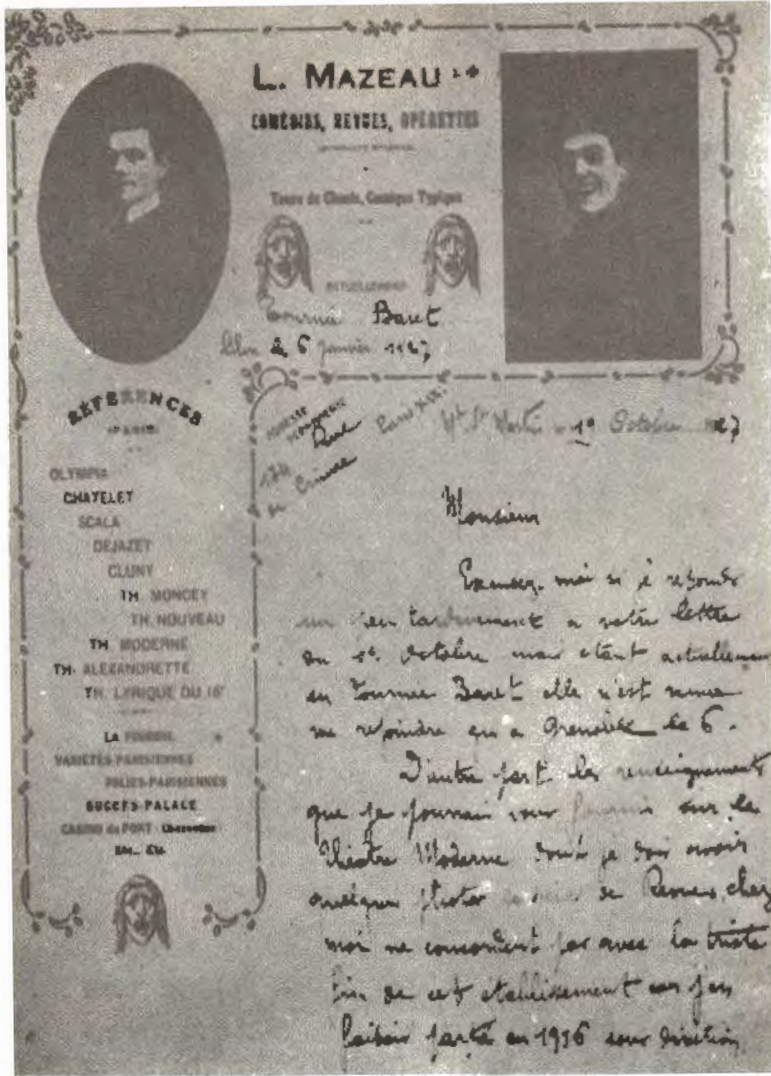 L. MAZEAU
COMÉDIES, REVUES, OPÉRETTES
Tours de Chants, Comique Typique
ACTUELLEMENT
Tournée Baret
6 Janvier
RÉFÉRENCES
PARIS
OLYMPIA
CHATELET
SCALA
DEJAZET
CLUNY
TH MONCEY
TH. NOUVEAU
TH MODERNE
TH. ALEXANDRETTE
TH. LYRIQUE DU 16e
LA
VARIÉTÉS-PARISIENNES
FOLIES-PARISIENNES
CASINO du PORT
ADRESSE
PERMANENTE
174 Rue
de Crimée
Paris XIX.
Octobre
Monsieur
Excusez-moi si je réponds
un peu tardivement a votre lettre
du Octobre mais étant actuellement
en Tournée Baret elle n'est venue
me rejoindre qu'a Grenoble le 6.
D'autre part les renseignements
que je pourrai vous fournir sur le
Théâtre Moderne dont je dois avoir
quelques photos de Revues chez
moi ne concordent pas avec la triste
fin de cet établissement car j'en
faisais partie en sous direction